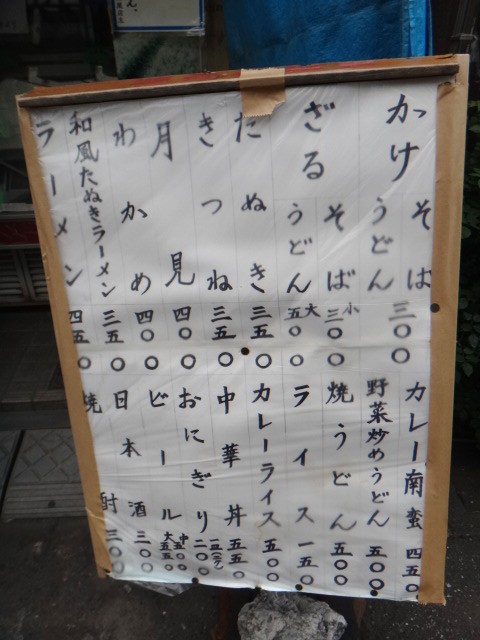 かけ そば うどん 三〇〇
ざる そば うどん 小 三〇〇 大 五〇〇
たぬき 三五〇
きつね 三五〇
月見 四〇〇
わかめ 四〇〇
和風たぬきラーメン 三五〇
ラーメン 四五〇
カレー南蛮 四五〇
野菜炒めうどん 五〇〇
焼うどん 五〇〇
ライス 一五〇
カレーライス 五〇〇
中華丼 五五〇
おにぎり 二〇〇
ビール 中五〇〇 大五五〇
日本酒 三〇〇
焼酎 三〇〇